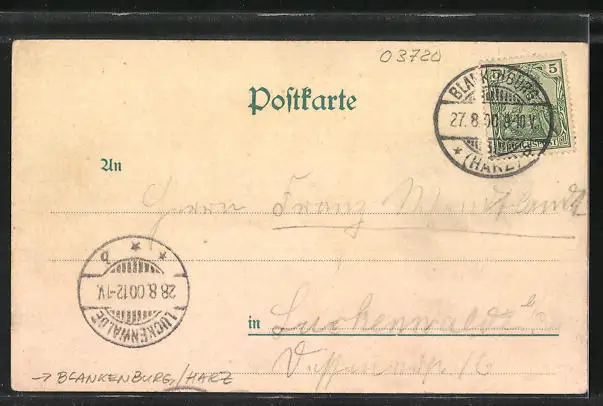 03720
Postkarte
BLANKENBURG
27.8.00.8-10V.
* (HARZ) a
5
REICHSPOST
An
Herrn Franz
28.8.00.12-1V.
LUCKENWALDE
* * b
in Luckenwalde
16
→ BLANKENBURG/HARZ